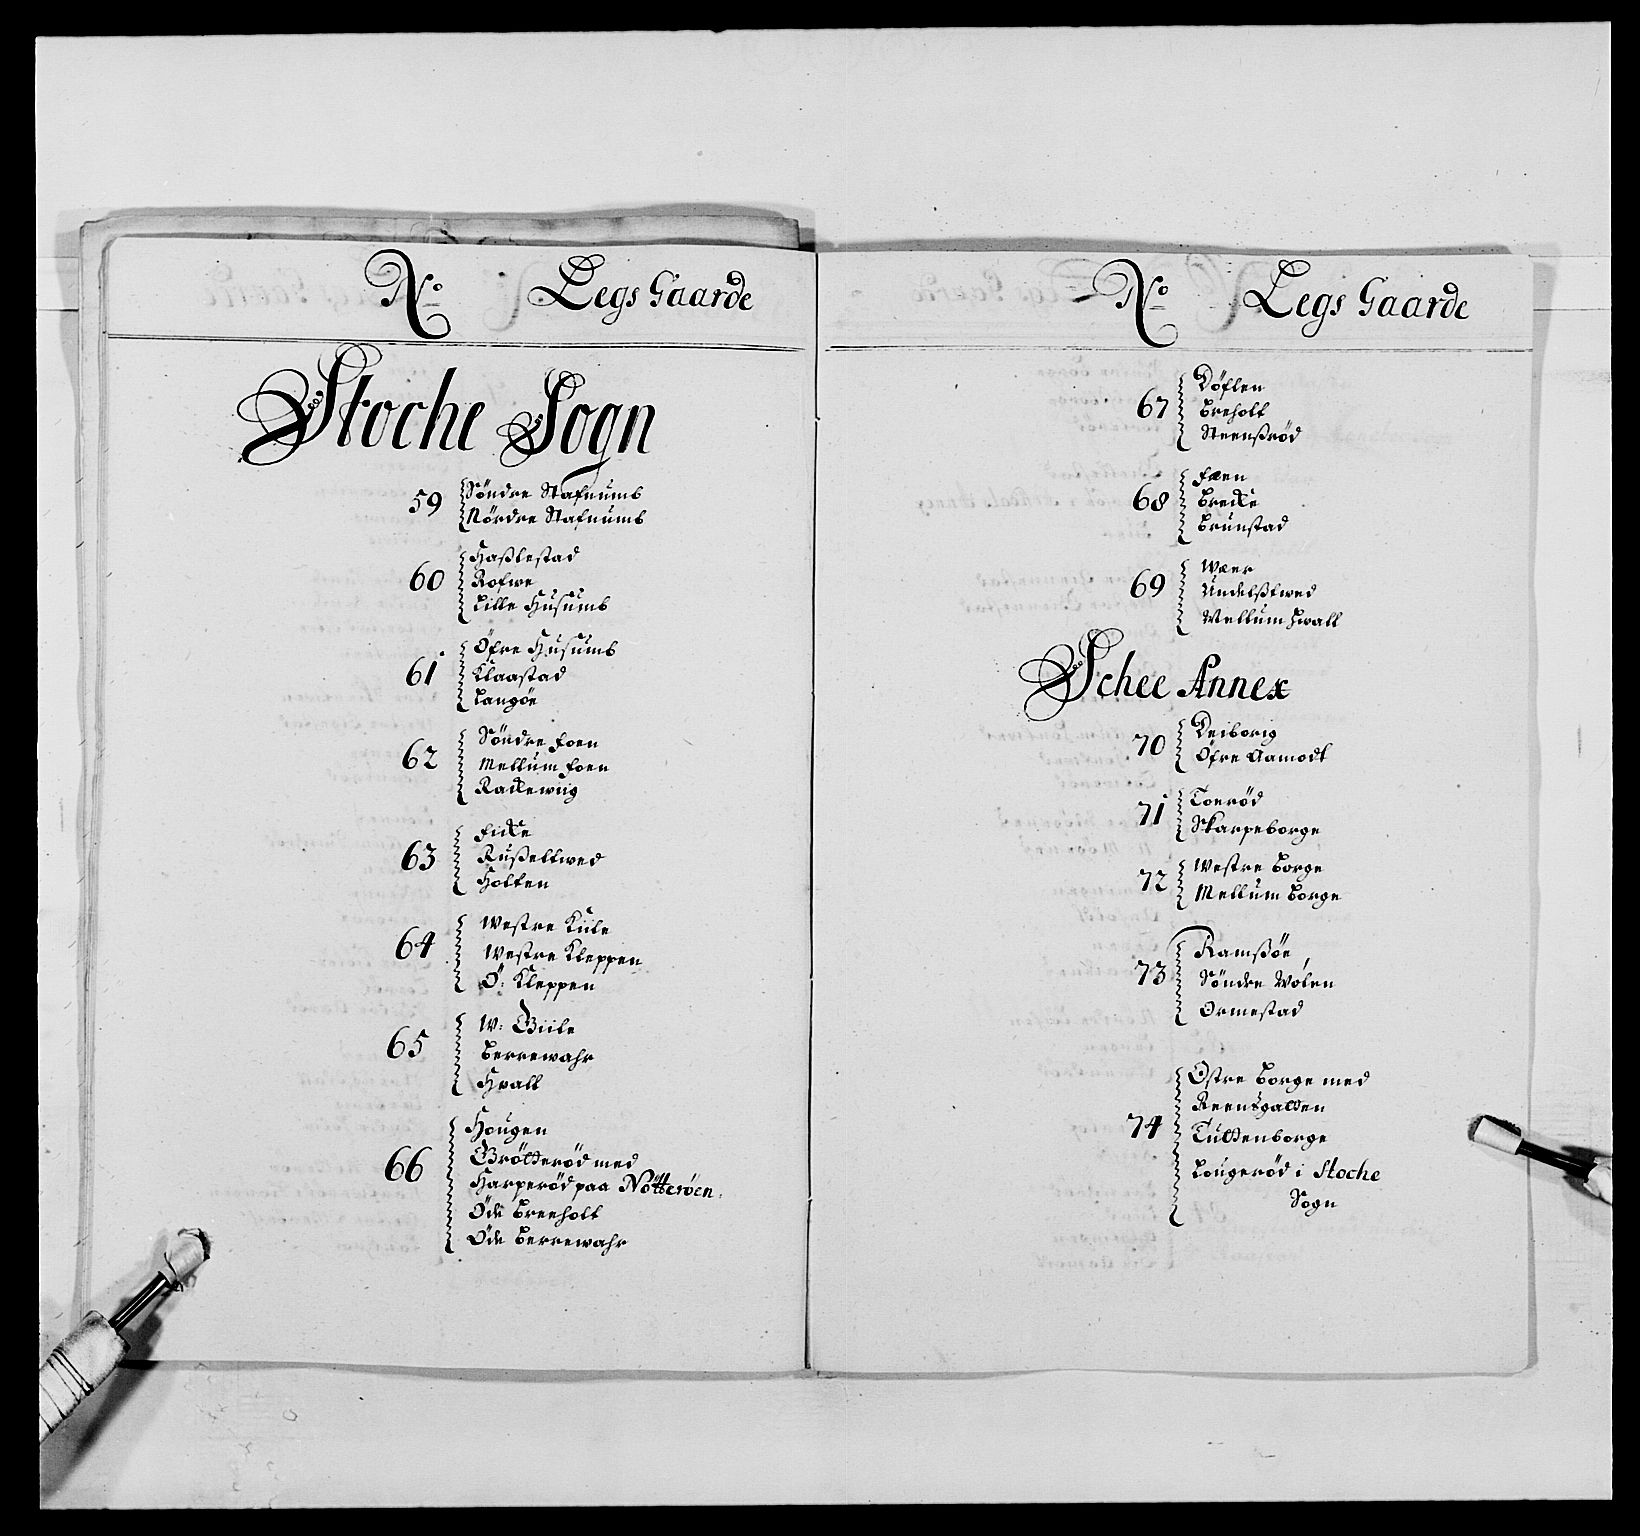 No Legs Gaarde
Stoche Sogn
59 Söndre Stafnumb
Nördre Stafnumb
60 Haßlestad
Rofwe
Lille Husumb
61 Öfre Husumb
Klaastad
Langöe
62 Söndre Foen
Mellum Foen
Rackewiig
63 Ficke
Rußeltwed
Holten
64 Westre Kiile
Westre Kleppen
Ö: Kleppen
65 W: Biile
Berrewahr
Hvall
66 Hougen
Grötteröd med
Harperöd paa Nötteröen
Öde Breeholt
Öde Berrewahr
No Legs Gaarde
67 Döflen
Breholt
Steenßröd
68 Fæen
Brecke
Brunstad
69 Wær
Undelßtwed
Mellum Hwall
Schee Annex
70 Deiborig
Öfre Aamodt
71 Toeröd
Skarpeborge
72 Westre Borge
Mellum Borge
73 Ramßöe
Söndre Wolen
Ormestad
74 Ostre Borge med
Reenßgatten
Tuttenborge
Lougeröd i Stoche
Sogn